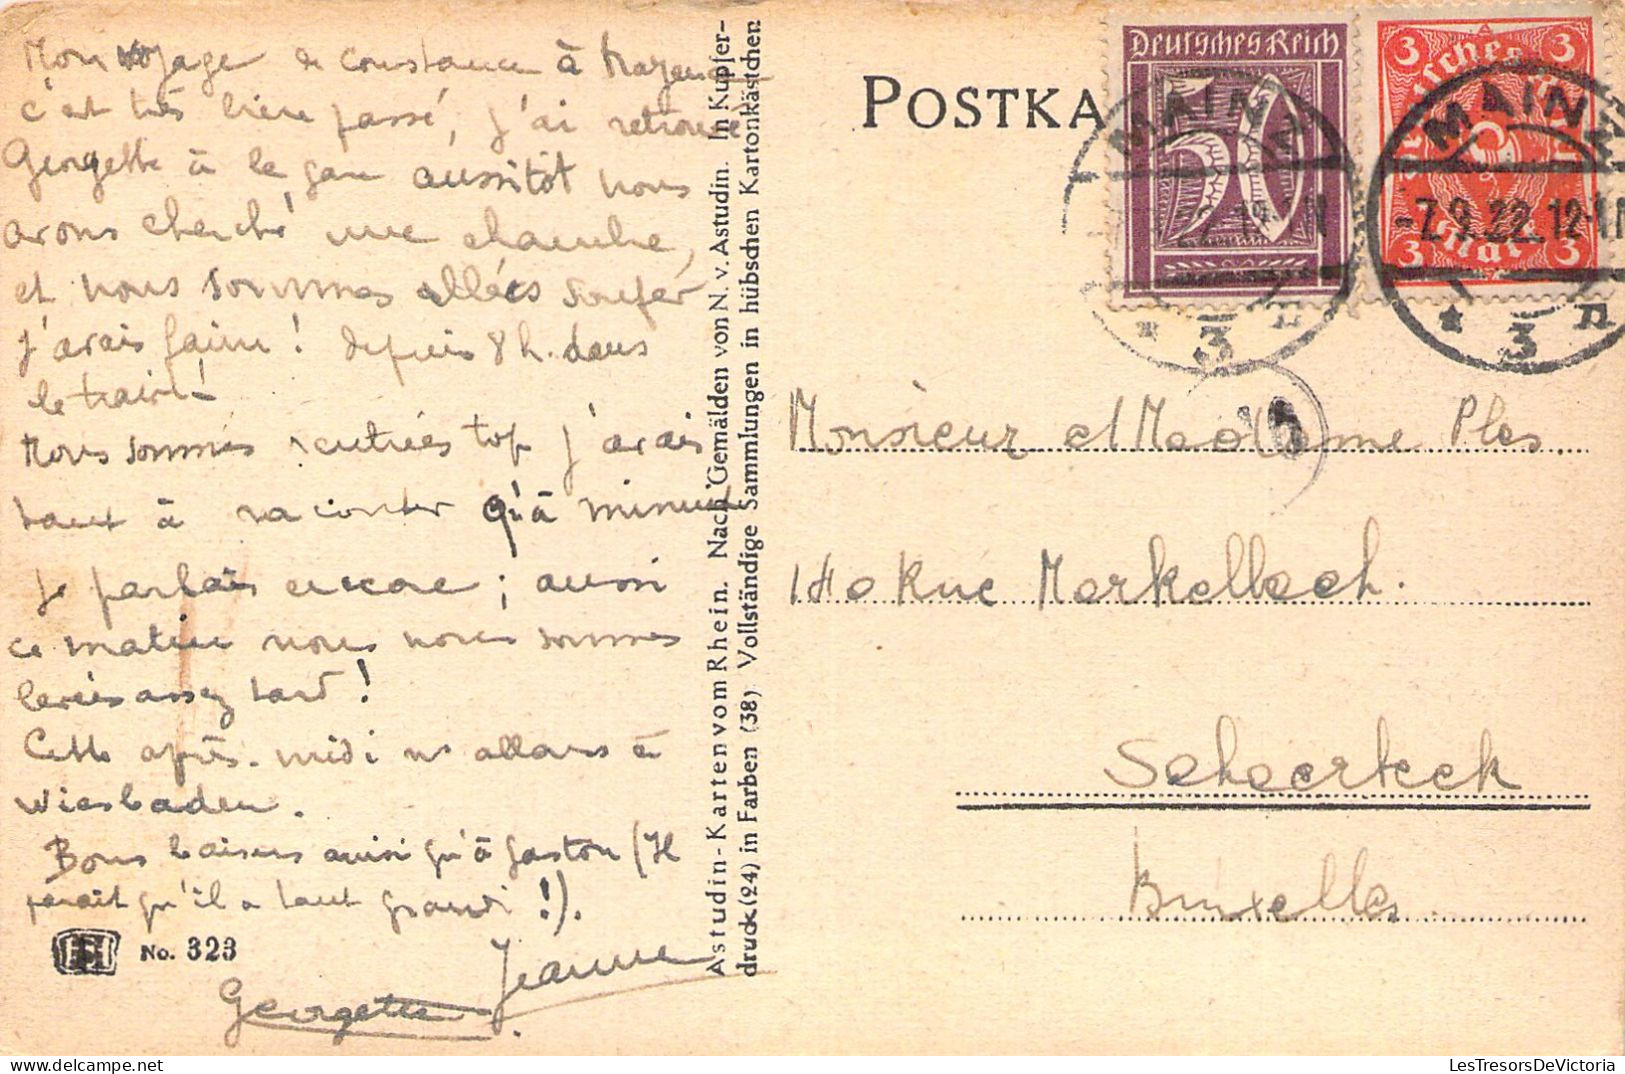 Mon voyage de Constance à Mayence
c'est très bien passé, j'ai retrouvé
Georgette à la gare aussitôt nous
avons cherché une chambre,
et nous sommes allées souper
j'avais faim! depuis 8 h. dans
le train!
Nous sommes rentrées tôt j'avais
tant à raconter qu'à minuit
je parlais encore; aussi
ce matin nous nous sommes
levées assez tard!
Cette après-midi ns allons à
Wiesbaden.
Bons baisers ainsi qu'à Gaston (Il
parait qu'il a tant grandi!).
Jeanne
Georgette
No. 323
Astudin-Karten vom Rhein. Nach Gemälden von N. v. Astudin. In Kupfer-
druck (24) in Farben (38) Vollständige Sammlungen in hübschen Kartonkästchen
POSTKA
Deutsches Reich
50
3 3
3 3
Mark
MAINZ
22.12-1N
* 3 n
MAINZ
-7.9.22.12-1N
* 3 n
Monsieur et Madame Ples.
140 Rue Merkelbach.
Schaerbeek
Bruxelles.
LesTresorsDeVictoria